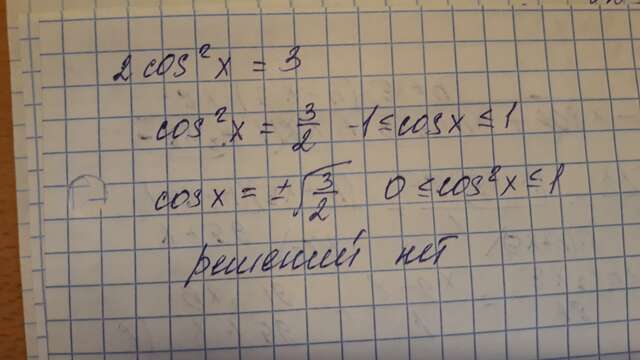 2 cos²x = 3
cos²x = 3/2 -1 ≤ cosx ≤ 1
cosx = ±√(3/2) 0 ≤ cos²x ≤ 1
решений нет